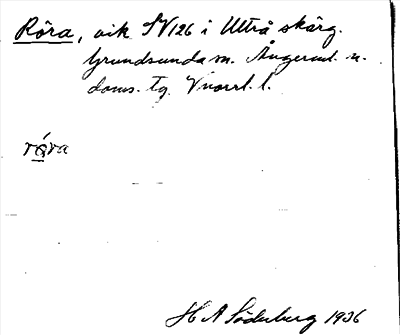 Röra, vik SV126 i Ulträ skärg.
Grundsunda sn. Ångerml. n.
doms. tg. Vnorrl. l.
röra
H A Söderberg 1936